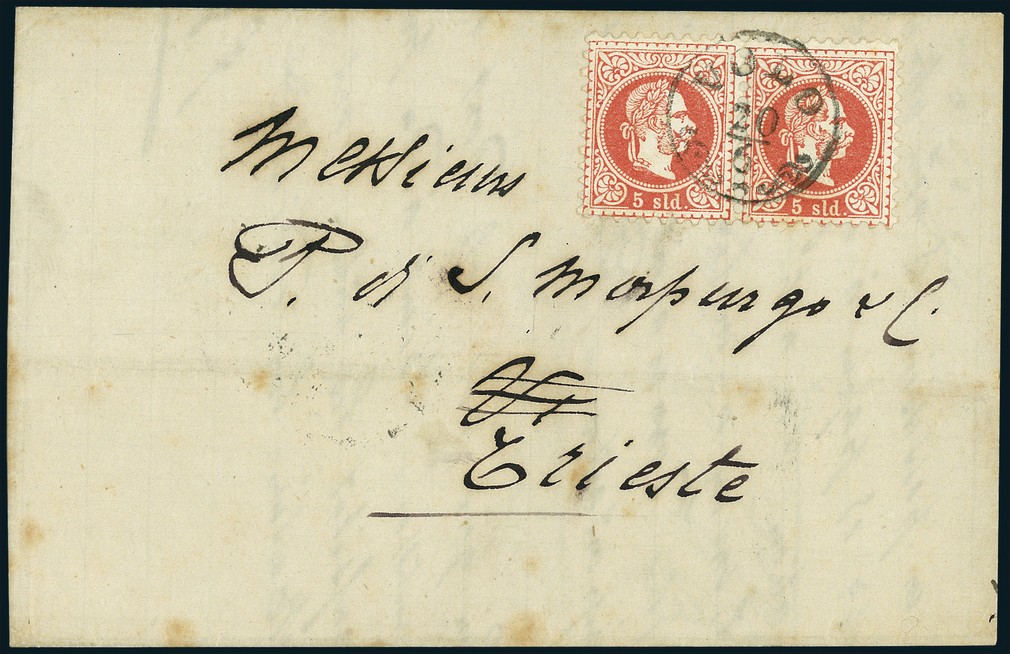 5 sld. 5 sld.
Messieurs
P. di S. Morpurgo & C.
Trieste